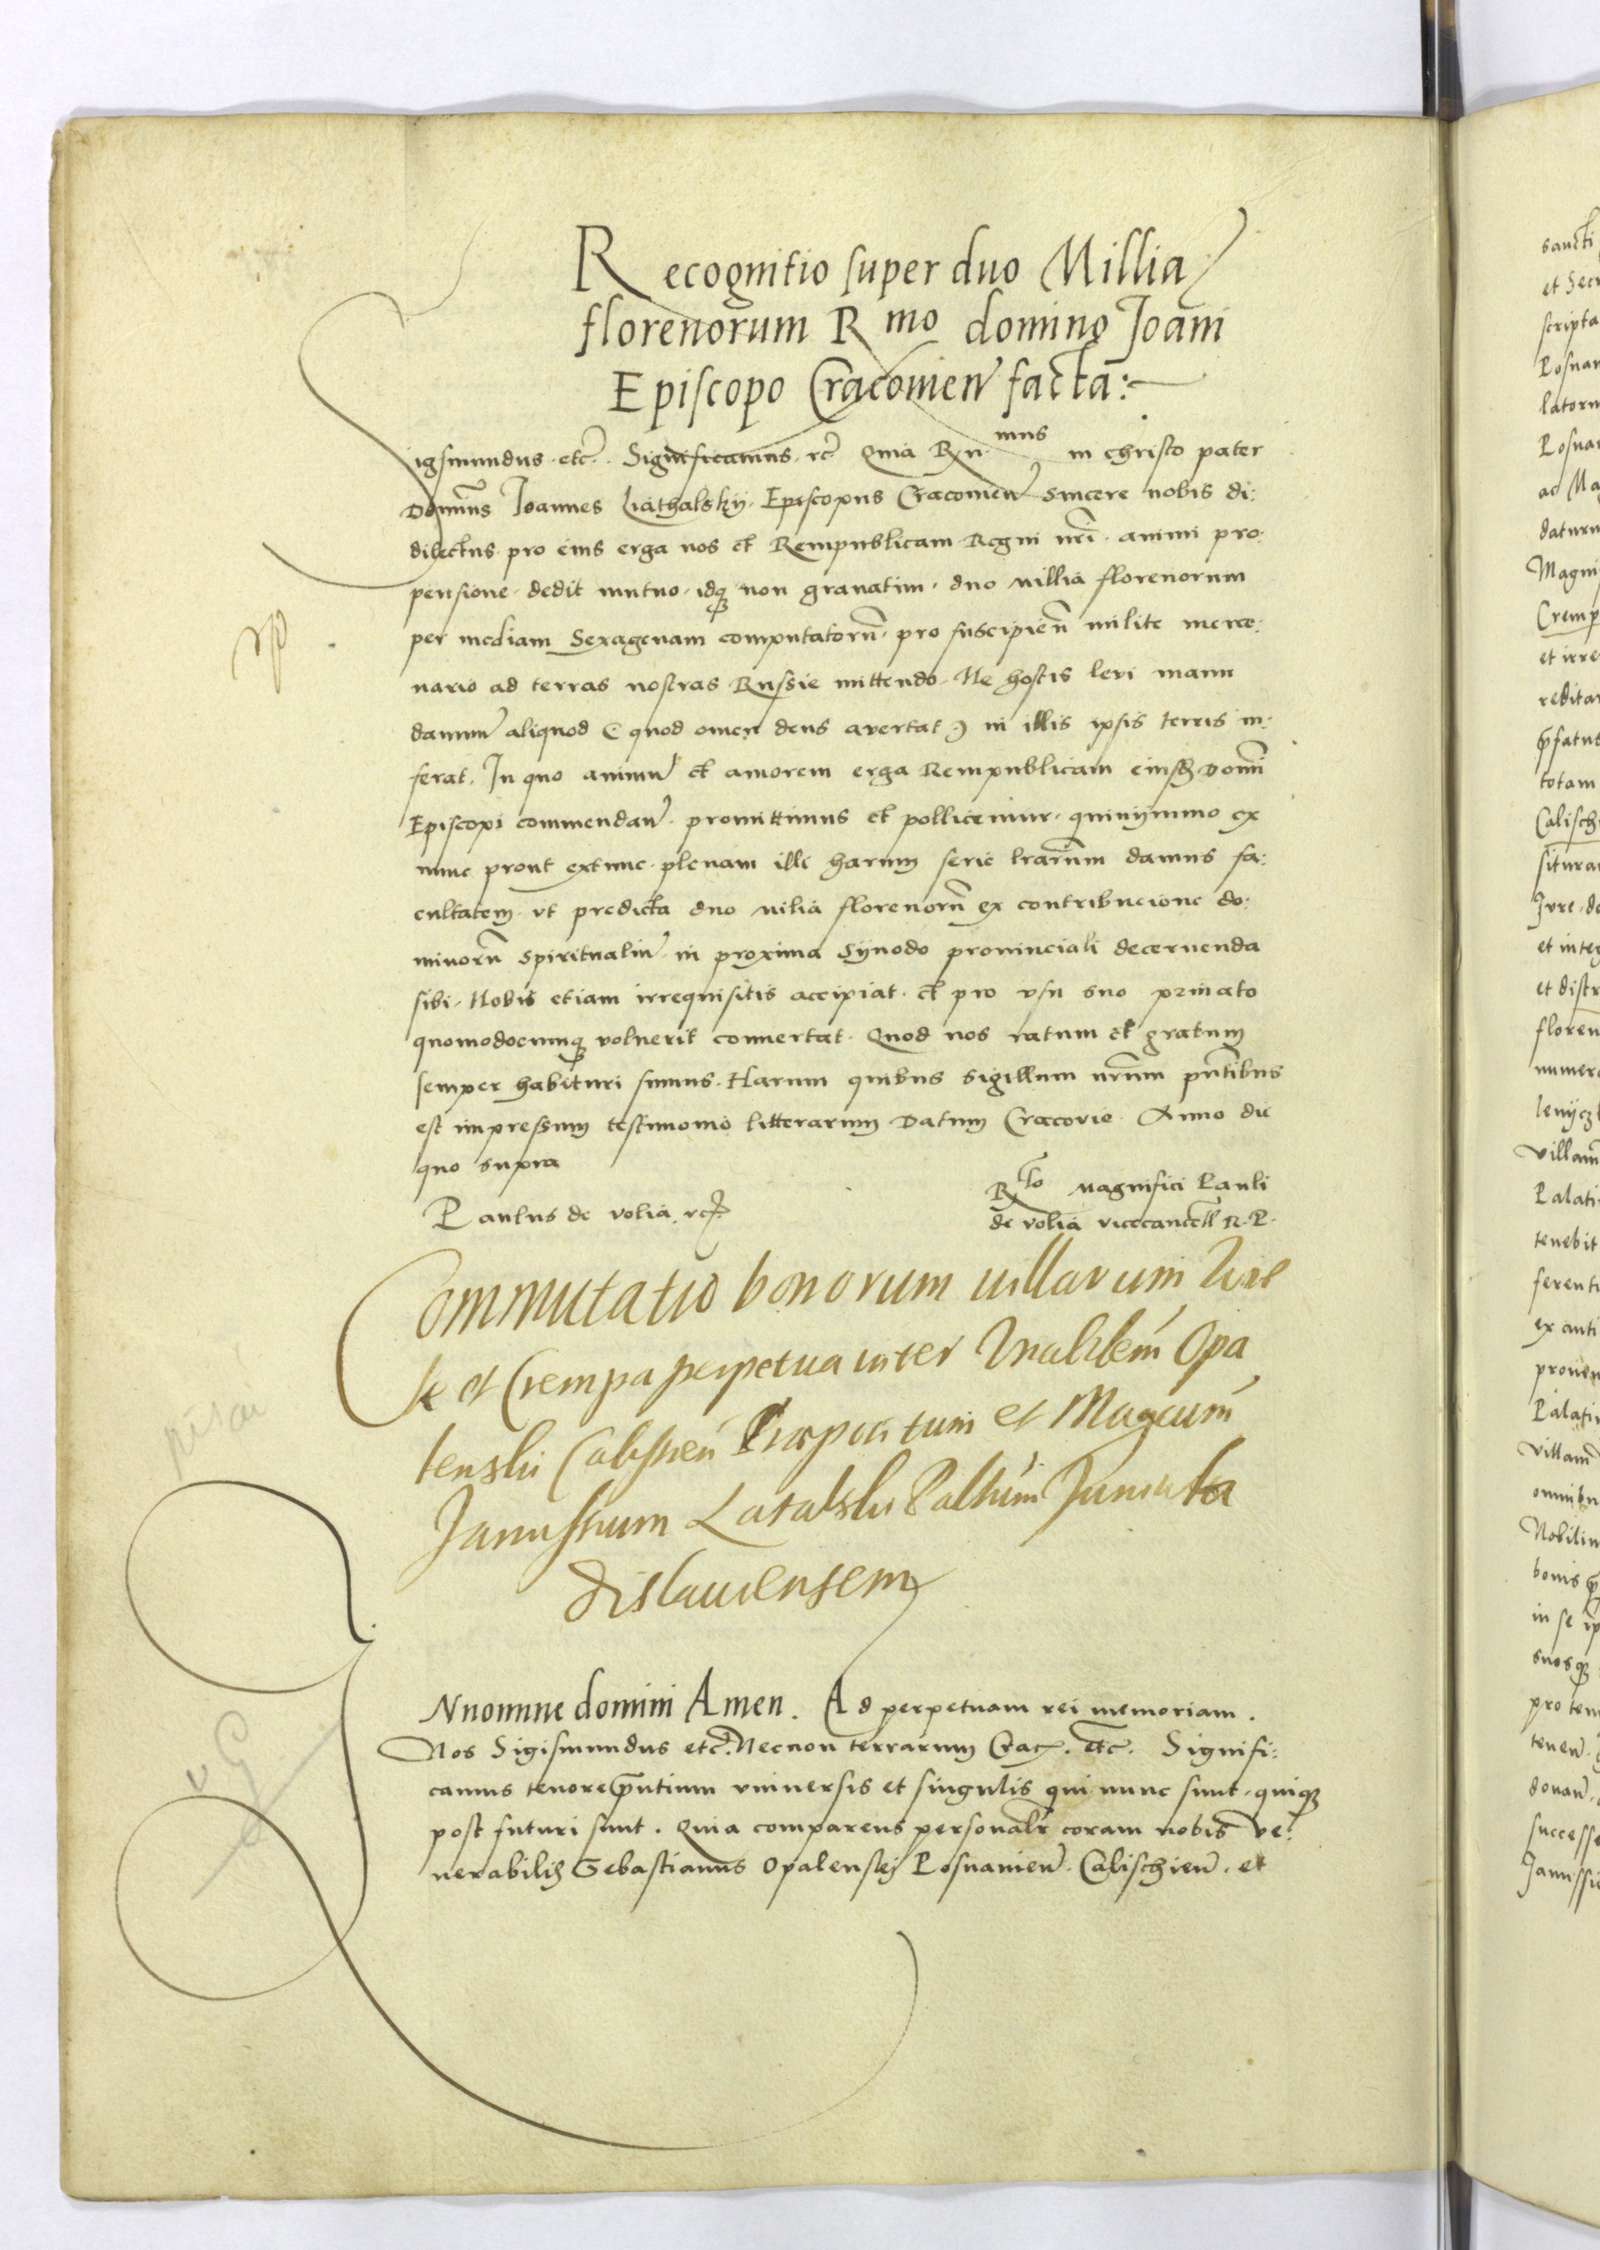 Recognitio super duo Millia
florenorum Rmo domino Joani
Episcopo Cracovien̄ facta:
Sigismundus etc̄. Significamus, rc̄ Quia Rn mus in Christo pater
Domin̄us Joannes Liathalskÿ Episcopus Cracovien̄ sincere nobis di:
dilectus pro eius erga nos et Rempublicam Regni nr̄i animi pro:
pensione dedit mutuo idq́ȝ non gravatim duo millia florenorum
per mediam Sexagenam computatorū pro suscipien̄ milite merce:
nario ad terras nostras Russie mittendo. Ne hostis levi manu
damnū aliquod ( quod omen deus avertat ) in illis ipsis terris in:
ferat. In quo animū et amorem erga Rempublicam eiusdȝ Domī
Episcopi commendan̄ promittimus et pollicemur quinÿmmo ex
nunc prout extunc plenam illi harum serie lrārum damus fa:
cultatem ut predicta duo milia florenorū ex contribucione do:
minorū spiritualiū in proxima Sÿnodo provinciali decernenda
sibi Nobis etiam irrequisitis accipiat et pro usu suo privato
quomodocumqȝ voluerit convertat. Quod nos ratum et gratum
semper habituri sumus. Harum quibus sigillum nrūm pn̄tibus
est impressum testimonio litterarum Datum Cracovie Anno die
quo supra
Paulus de volia, rc̄
Rto Magnifici Pauli
de volia vicecancell R. P.
Commutatio bonorum villarum
et Crempa perpetua inter Opa
lenski Calissien̄ Præpositum et Magcum̄
Janussium Latalski Paltum̄ Juniula
dislaviensem
IN nomine domini Amen. Ad perpetuam rei memoriam.
Nos Sigismundus etc̄. Necnon terrarum Crac. etc̄. Signifi:
camus tenore p̄ntium universis et singulis qui nunc sunt quiqȝ
post futuri sunt. Quia comparens personalr̄ coram nobis ve:
nerabilis Sebastianus Opalensky Posnanien̄. Calischien̄. et